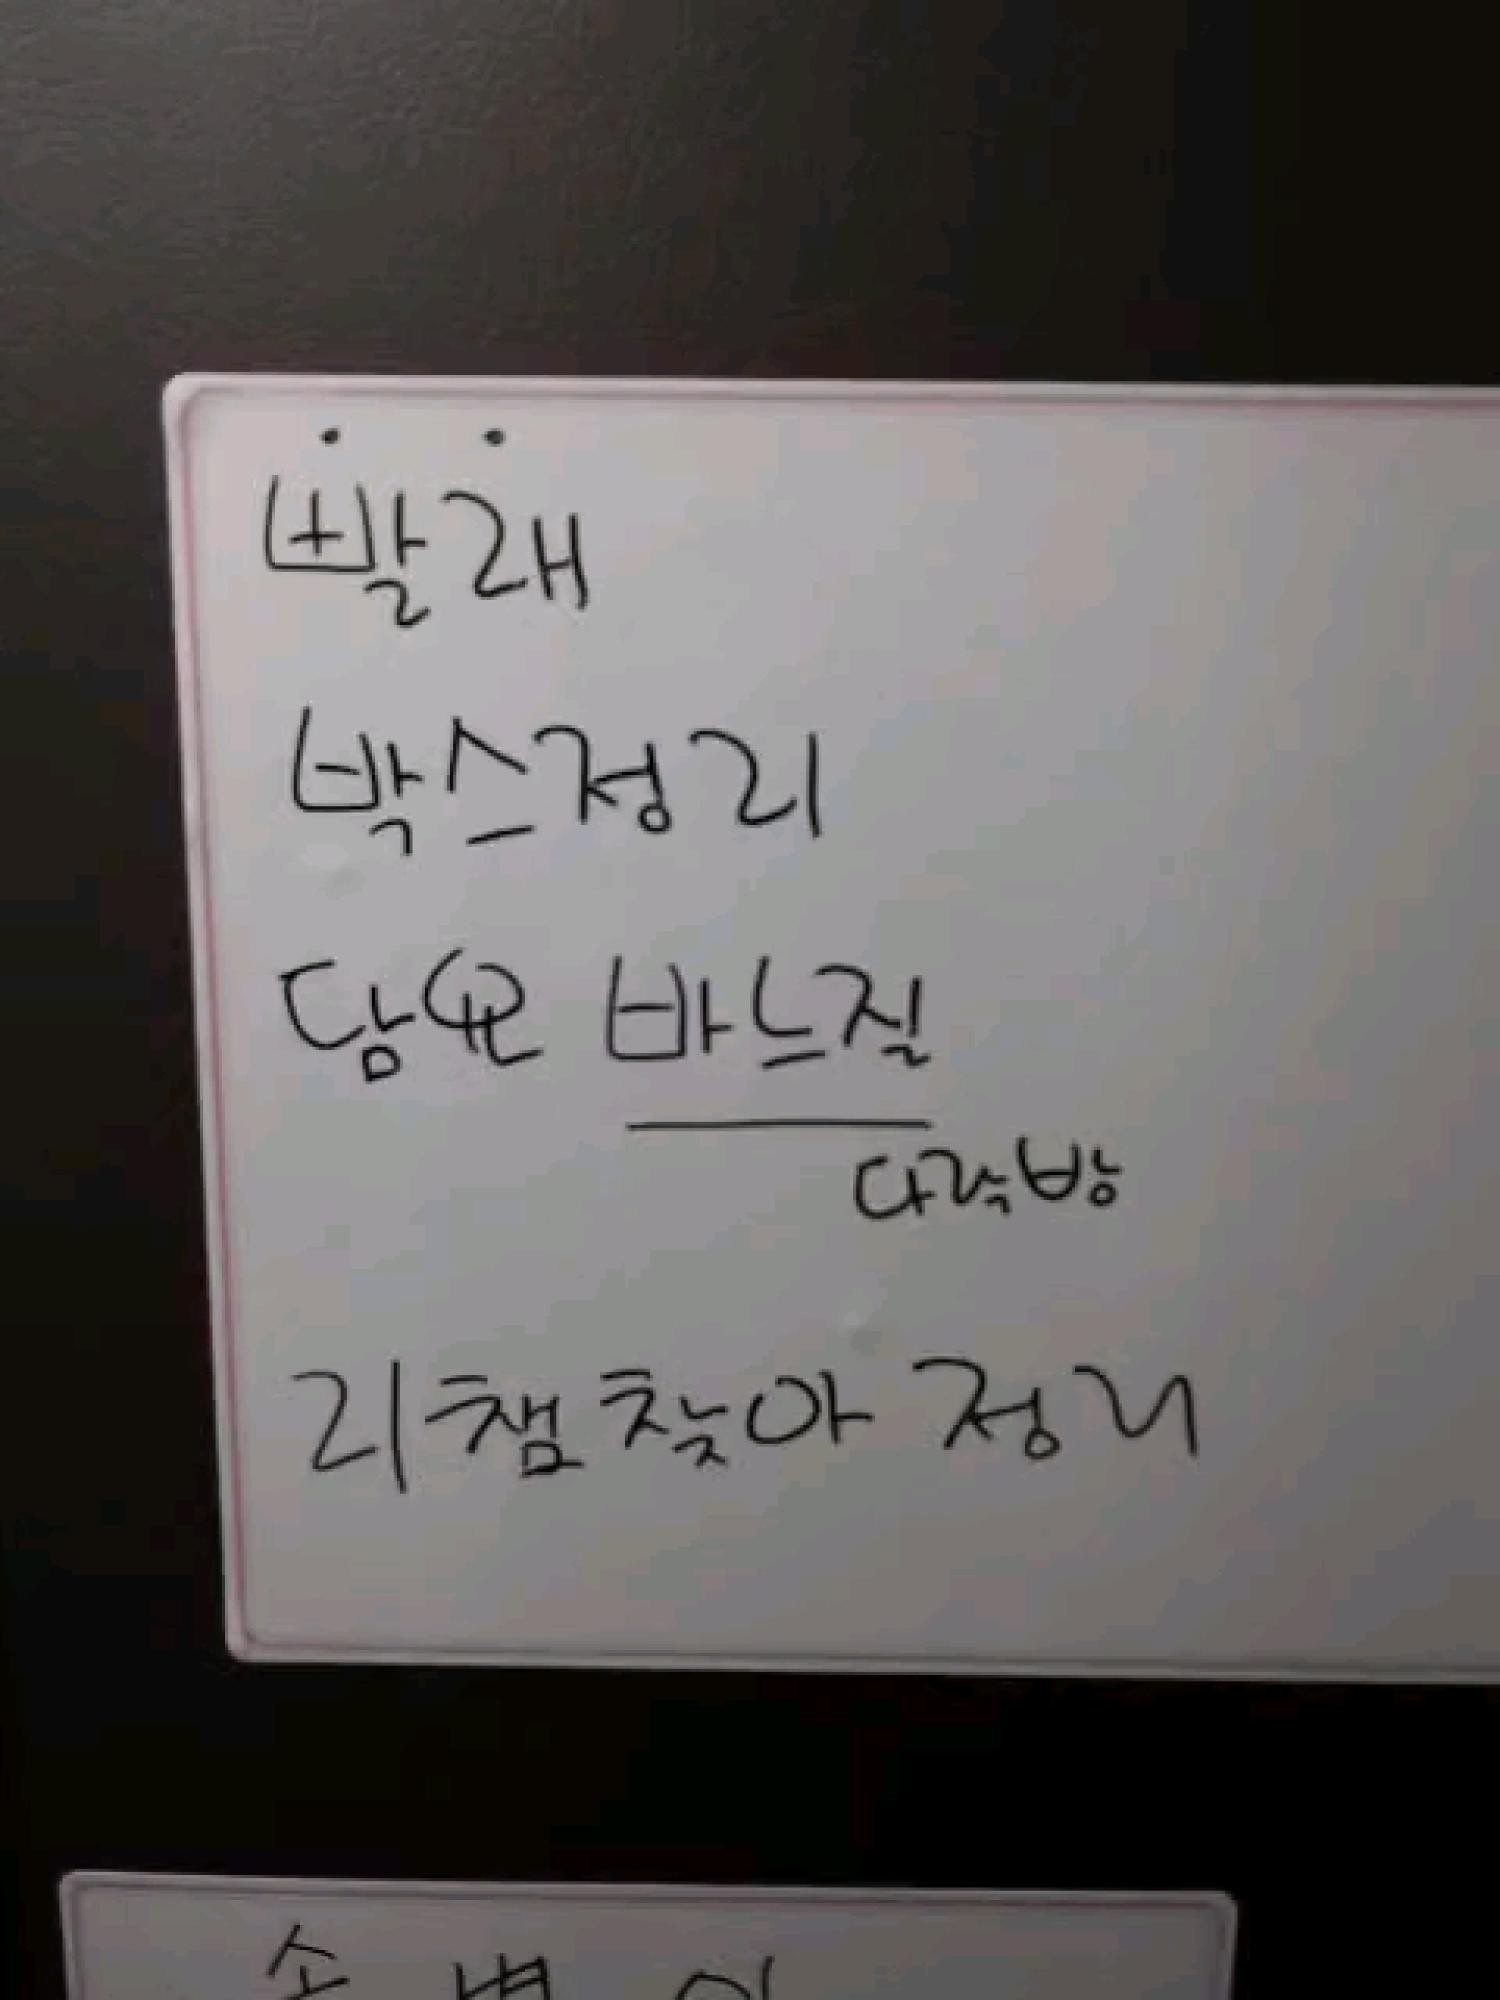 빨래
박스정리
담요 바느질
다락방
리챔찾아 정리